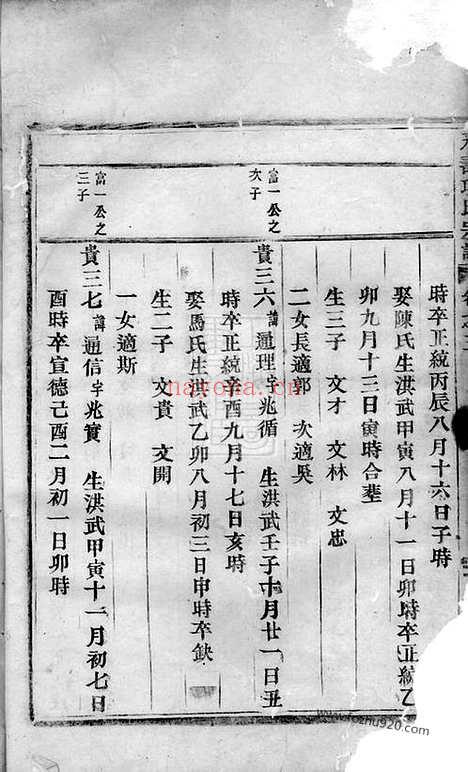 時卒正統丙辰八月十六日子時
娶陳氏生洪武甲寅八月十一日卯時卒正統乙
卯九月十三日寅時合塟
生三子 文才 文林 文忠
二女長適郭 次適吳
富一公之
次子
貴三六 諱通理字兆循 生洪武壬子十月廿一日丑
時卒正統辛酉九月十七日亥時
娶馬氏生洪武乙卯八月初三日申時卒缺
生二子 文貴 文開
一女適斯
富一公之
三子
貴三七 諱通信字兆實 生洪武甲寅十一月初七日
酉時卒宣德己酉二月初一日卯時
nayona.cn
www.fozhu920.com